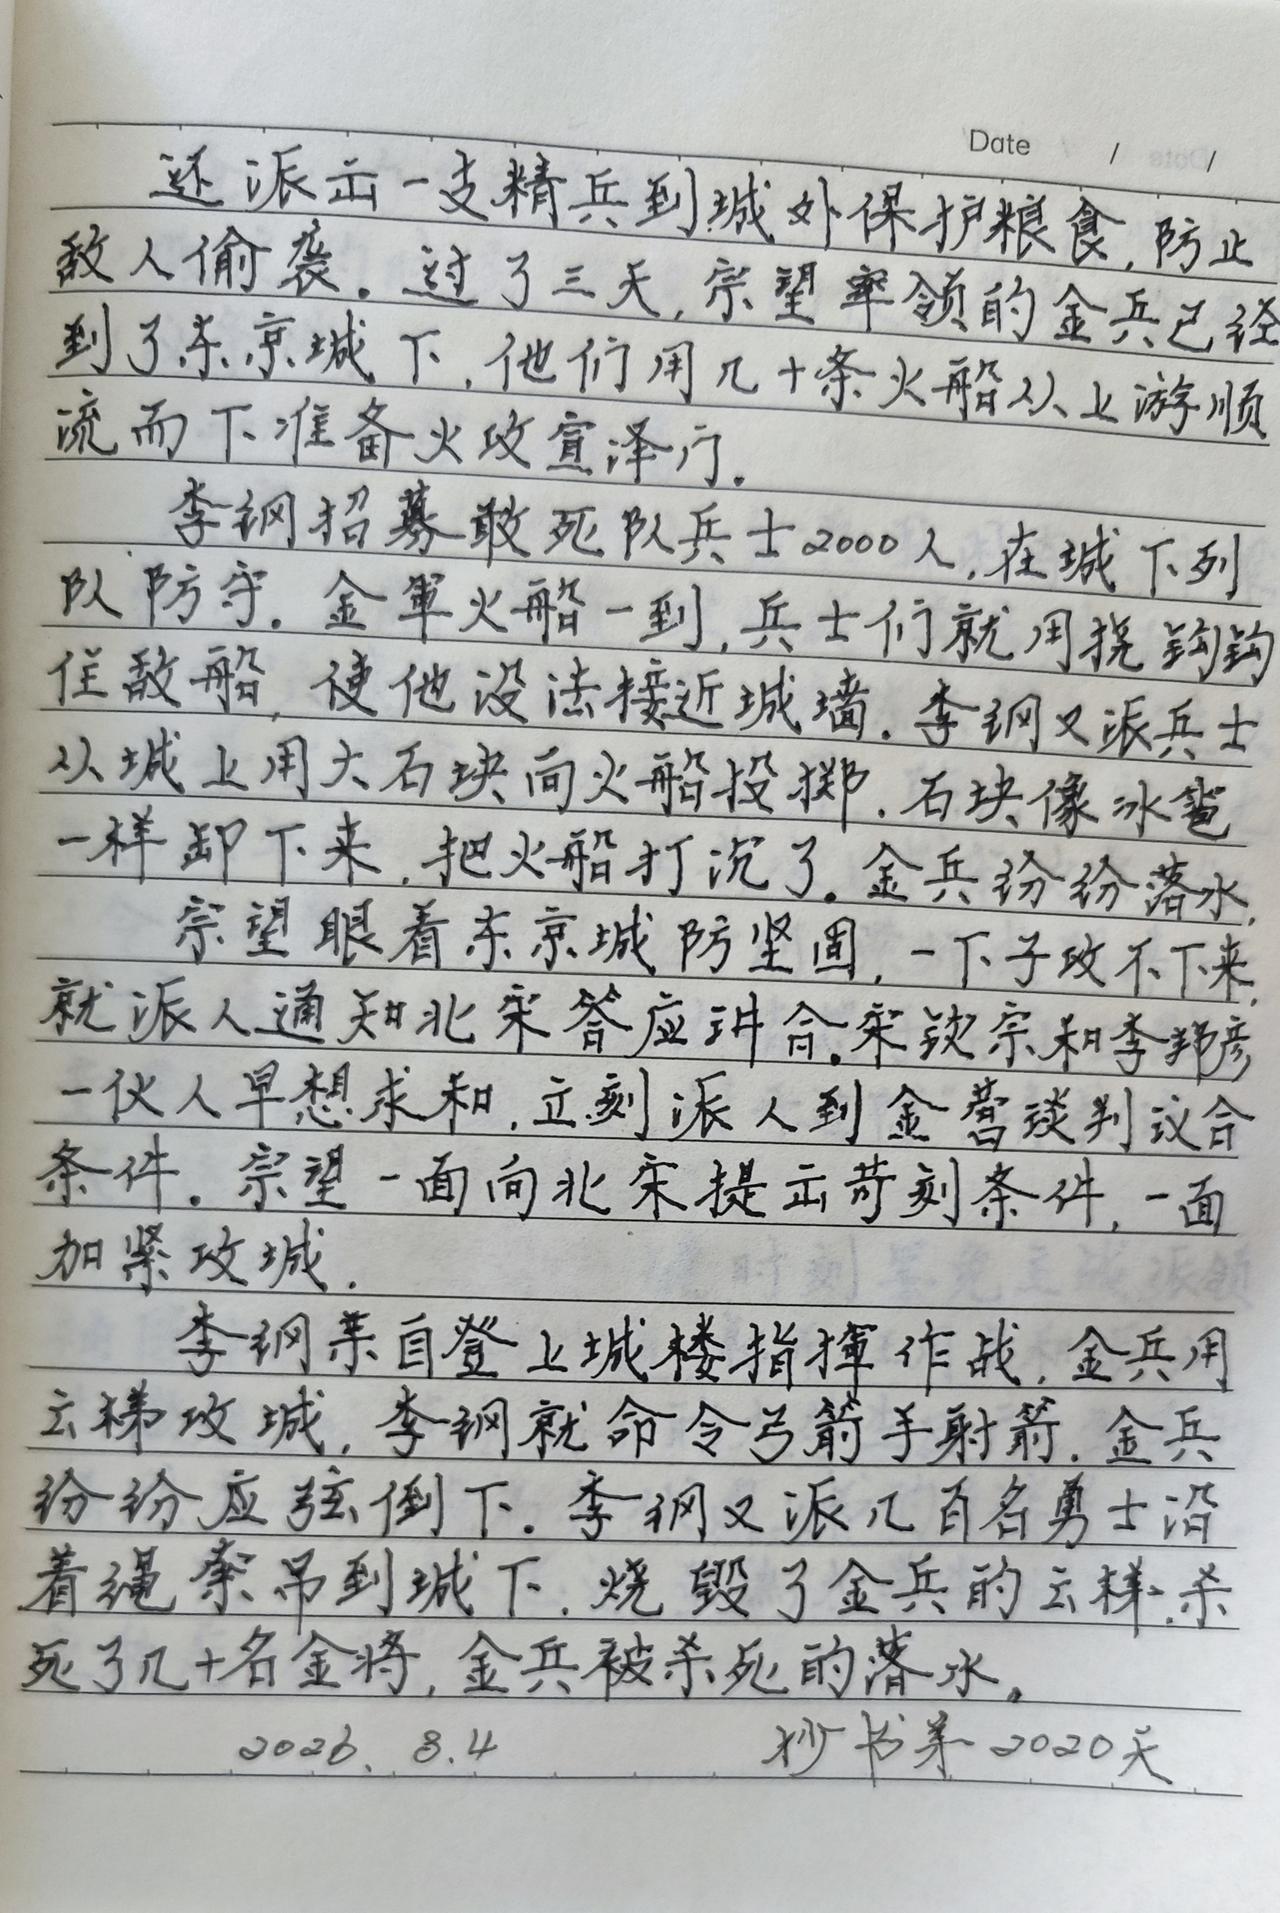 Date / /
还派出一支精兵到城外保护粮食,防止
敌人偷袭。过了三天,宗望率领的金兵已经
到了东京城下,他们用几十条火船从上游顺
流而下准备火攻宣泽门。
李钢招募敢死队兵士2000人,在城下列
队防守。金军火船一到,兵士们就用挠钩钩
住敌船,使他没法接近城墙。李钢又派兵士
从城上用大石块向火船投掷,石块像冰雹
一样卸下来,把火船打沉了。金兵纷纷落水,
宗望眼着东京城防坚固,一下子攻不下来,
就派人通知北宋答应讲合。宋钦宗和李邦彦
一伙人早想求和,立刻派人到金营谈判议合
条件。宗望一面向北宋提出苛刻条件,一面
加紧攻城.
李钢亲自登上城楼指挥作战,金兵用
云梯攻城,李钢就命令弓箭手射箭.金兵
纷纷应弦倒下。李钢又派几百名勇士沿
着绳索吊到城下,烧毁了金兵的云梯,杀
死了几十名金将,金兵被杀死的落水。
2026.8.4 抄书第2020天